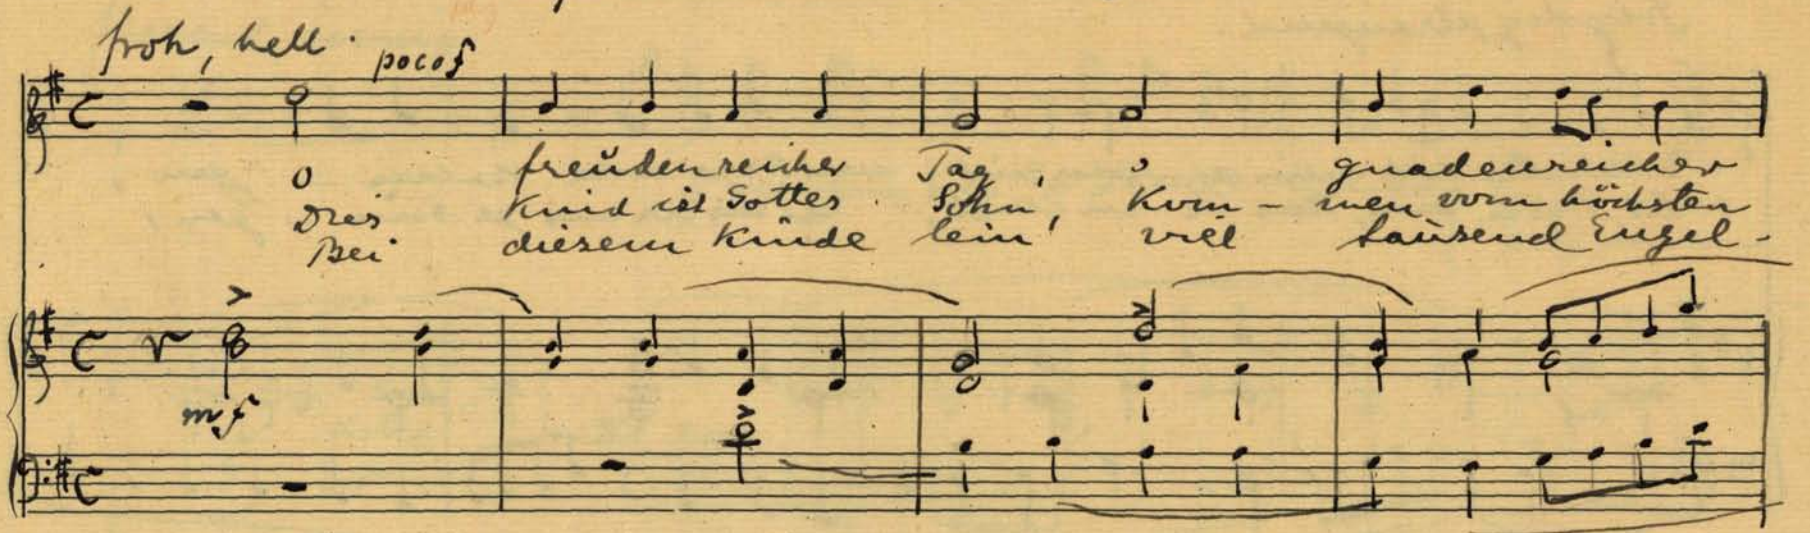 froh, hell.
poco f
o freudenreicher Tag, o gnadenreicher
Dies Kind ist Gottes Sohn, Kom - men vom höchsten
Bei diesem Kinde lein' viel tausend Engel -
mf